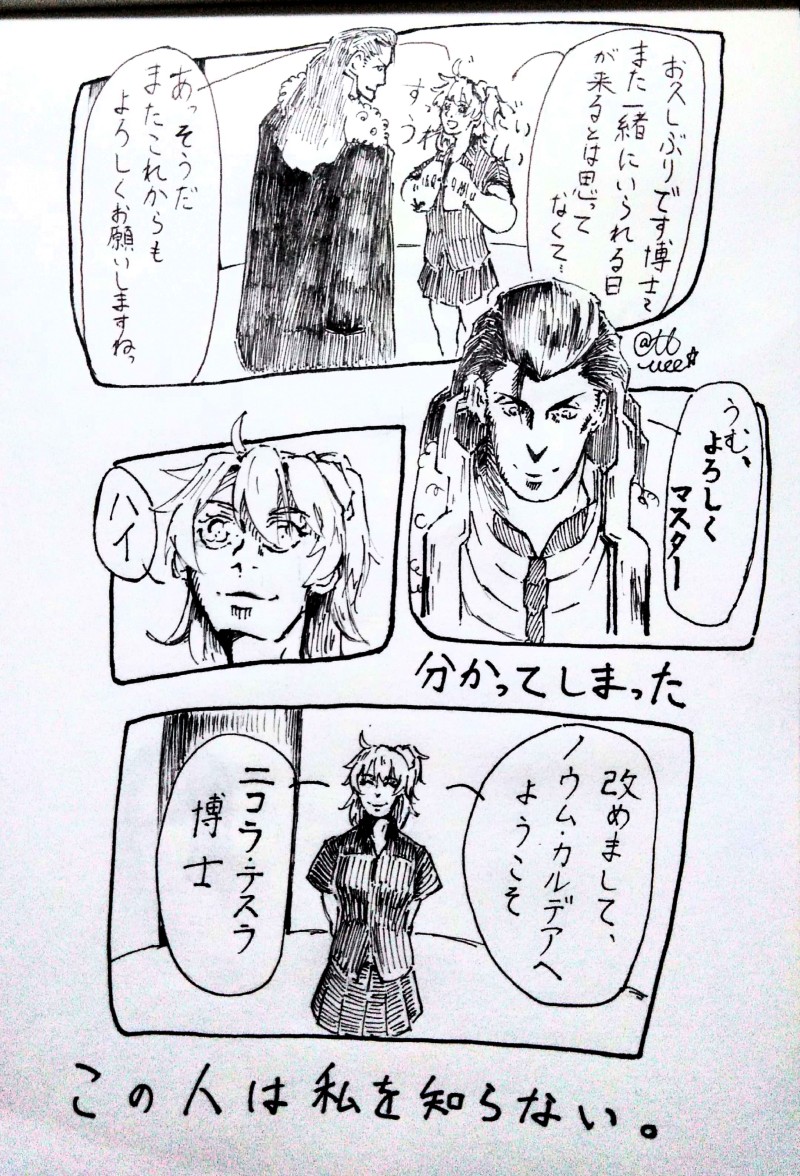 お久しぶりです、博士
また一緒にいられる日
が来るとは思って
なくて…
すっ
うれ
あっそうだ
またこれからも
よろしくお願いしますねっ
うむ、
よろしく
マスター
ハイ
分かってしまった
改めまして、
ノウム・カルデアへ
ようこそ
ニコラ・テスラ
博士
この人は私を知らない。